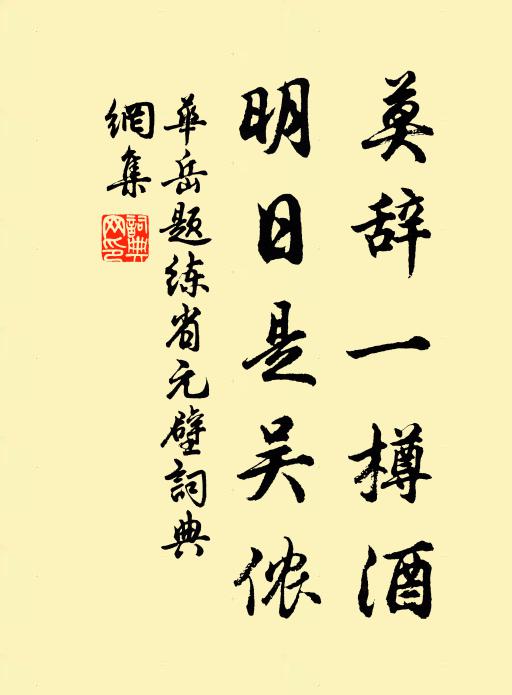 莫辞一樽酒
明日是吴侬
華岳题练省元壁詞典
網集
詞典
网印